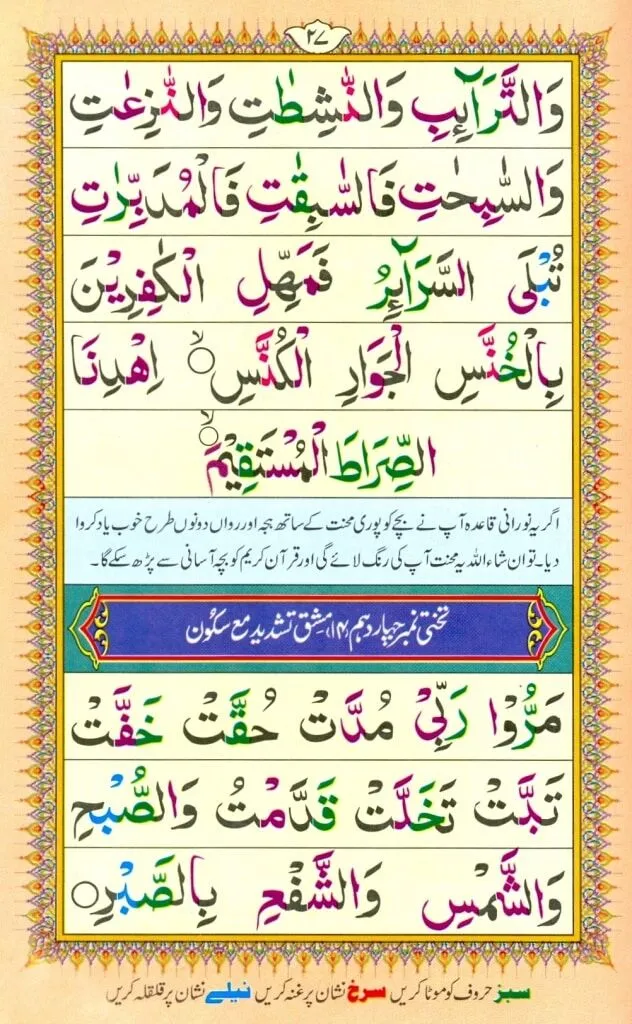 ۲۷
وَالتَّرَآئِبِ وَالنّٰشِطٰتِ وَالنّٰزِعٰتِ
وَالسّٰبِحٰتِ فَالسّٰبِقٰتِ فَالْمُدَبِّرٰتِ
تُبْلَى السَّرَآئِرُ فَمَهِّلِ الْكٰفِرِيْنَ
بِالْخُنَّسِ الْجَوَارِ الْكُنَّسِ ۙ○ اِهْدِنَا
الصِّرَاطَ الْمُسْتَقِيْمَ ۙ○
اگر یہ نورانی قاعدہ آپ نے بچے کو پوری محنت کے ساتھ ہجہ اور رواں دونوں طرح خوب یاد کروا
دیا۔ تو ان شاء اللہ یہ محنت آپ کی رنگ لائے گی اور قرآن کریم کو بچہ آسانی سے پڑھ سکے گا۔
تختی نمبر چہار دہم (۱۴) مشق تشدید مع سکُون
مَرُّوْا رَبِّيْ مُدَّتْ حُقَّتْ خَفَّتْ
تَبَّتْ تَخَلَّتْ قَدَّمْتُ وَالصُّبْحِ
وَالشَّمْسِ وَالشَّفْعِ بِالصَّبْرِ○
سبز حروف کو موٹا کریں سرخ نشان پر غنہ کریں نیلے نشان پر قلقلہ کریں